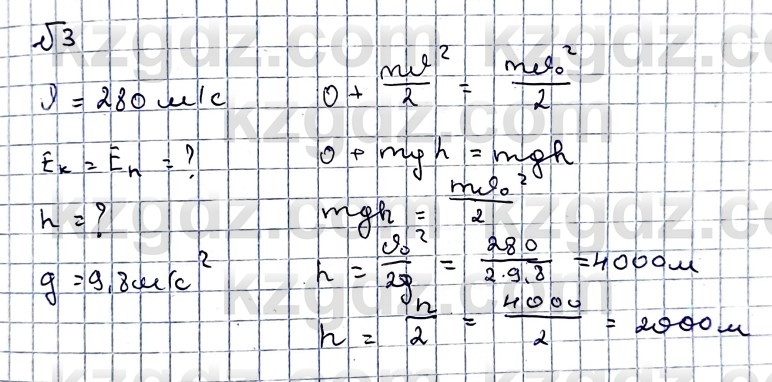 √3
𝒱 = 280 м/с
Eк = Eп = ?
h = ?
g = 9,8 м/с²
0 + mv²/2 = mv₀²/2
0 + mgh = mgh
mgh = mv₀²/2
h = v₀²/2g = 280/2·9,8 = 4000 м
h = h/2 = 4000/2 = 2000 м
kzgdz.com